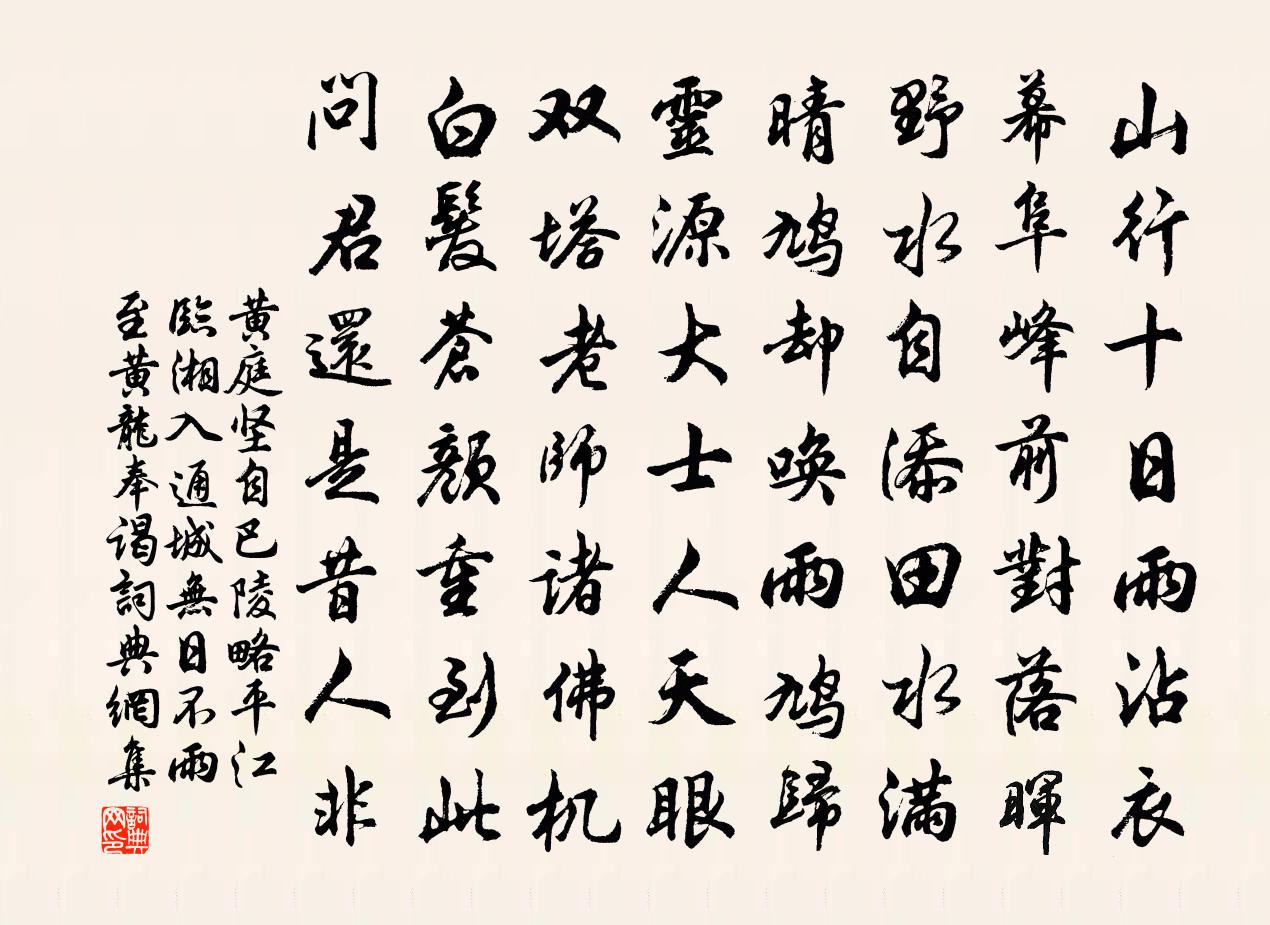 山行十日雨沾衣
幕阜峰前對落暉
野水自添田水滿
晴鳩却喚雨鳩歸
靈源大士人天眼
双塔老師諸佛机
白髮蒼顏重到此
問君還是昔人非
黄庭坚自巴陵略平江
臨湘入通城無日不雨
至黄龍奉谒詞典網集
詞典網印